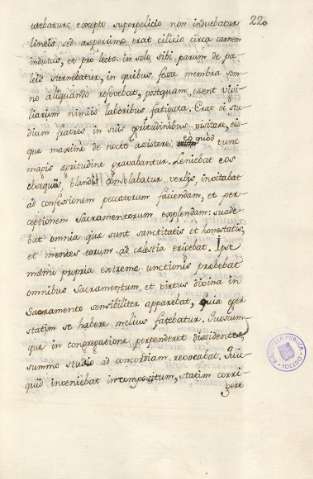 220
tabatur; excepto superpelicio non induebatur
lineis sed asperimo erat cilicio circa carnem
indutus, et pro lecto in solo sibi parum de pa-
leis sternebatur, in quibus fesa membra som-
no aliquando refovebat, postquam, esent vigi-
liarum nimiis laboribus fatigata. Erat ei stu-
dium fratres in suis egritudinibus visitare, eis-
que maxime de nocte assistere, quod tunc
magis egritudine gravabantur. Leniebat eos
obsequiis, blandis consolabatur verbis, invitabat
ad confesionem peccatorum faciendam, et per-
ceptionem Sacramentorum expetendam: suade-
bat omnia que sunt sanctitatis et honestatis,
et mentes eorum ad celestia erigebat. Ipse
manu propria extreme unctionis prebebat
omnibus Sacramentum, et virtus divina in
Sacramento sensibiliter apparebat, quia eger
statim se habere melius fatebatur. Quosum-
que in congregatione perpenderet dissidentes,
summo studio ad concordiam revocabat. Qui-
quid inveniebat incompositum, statim corri-
gere